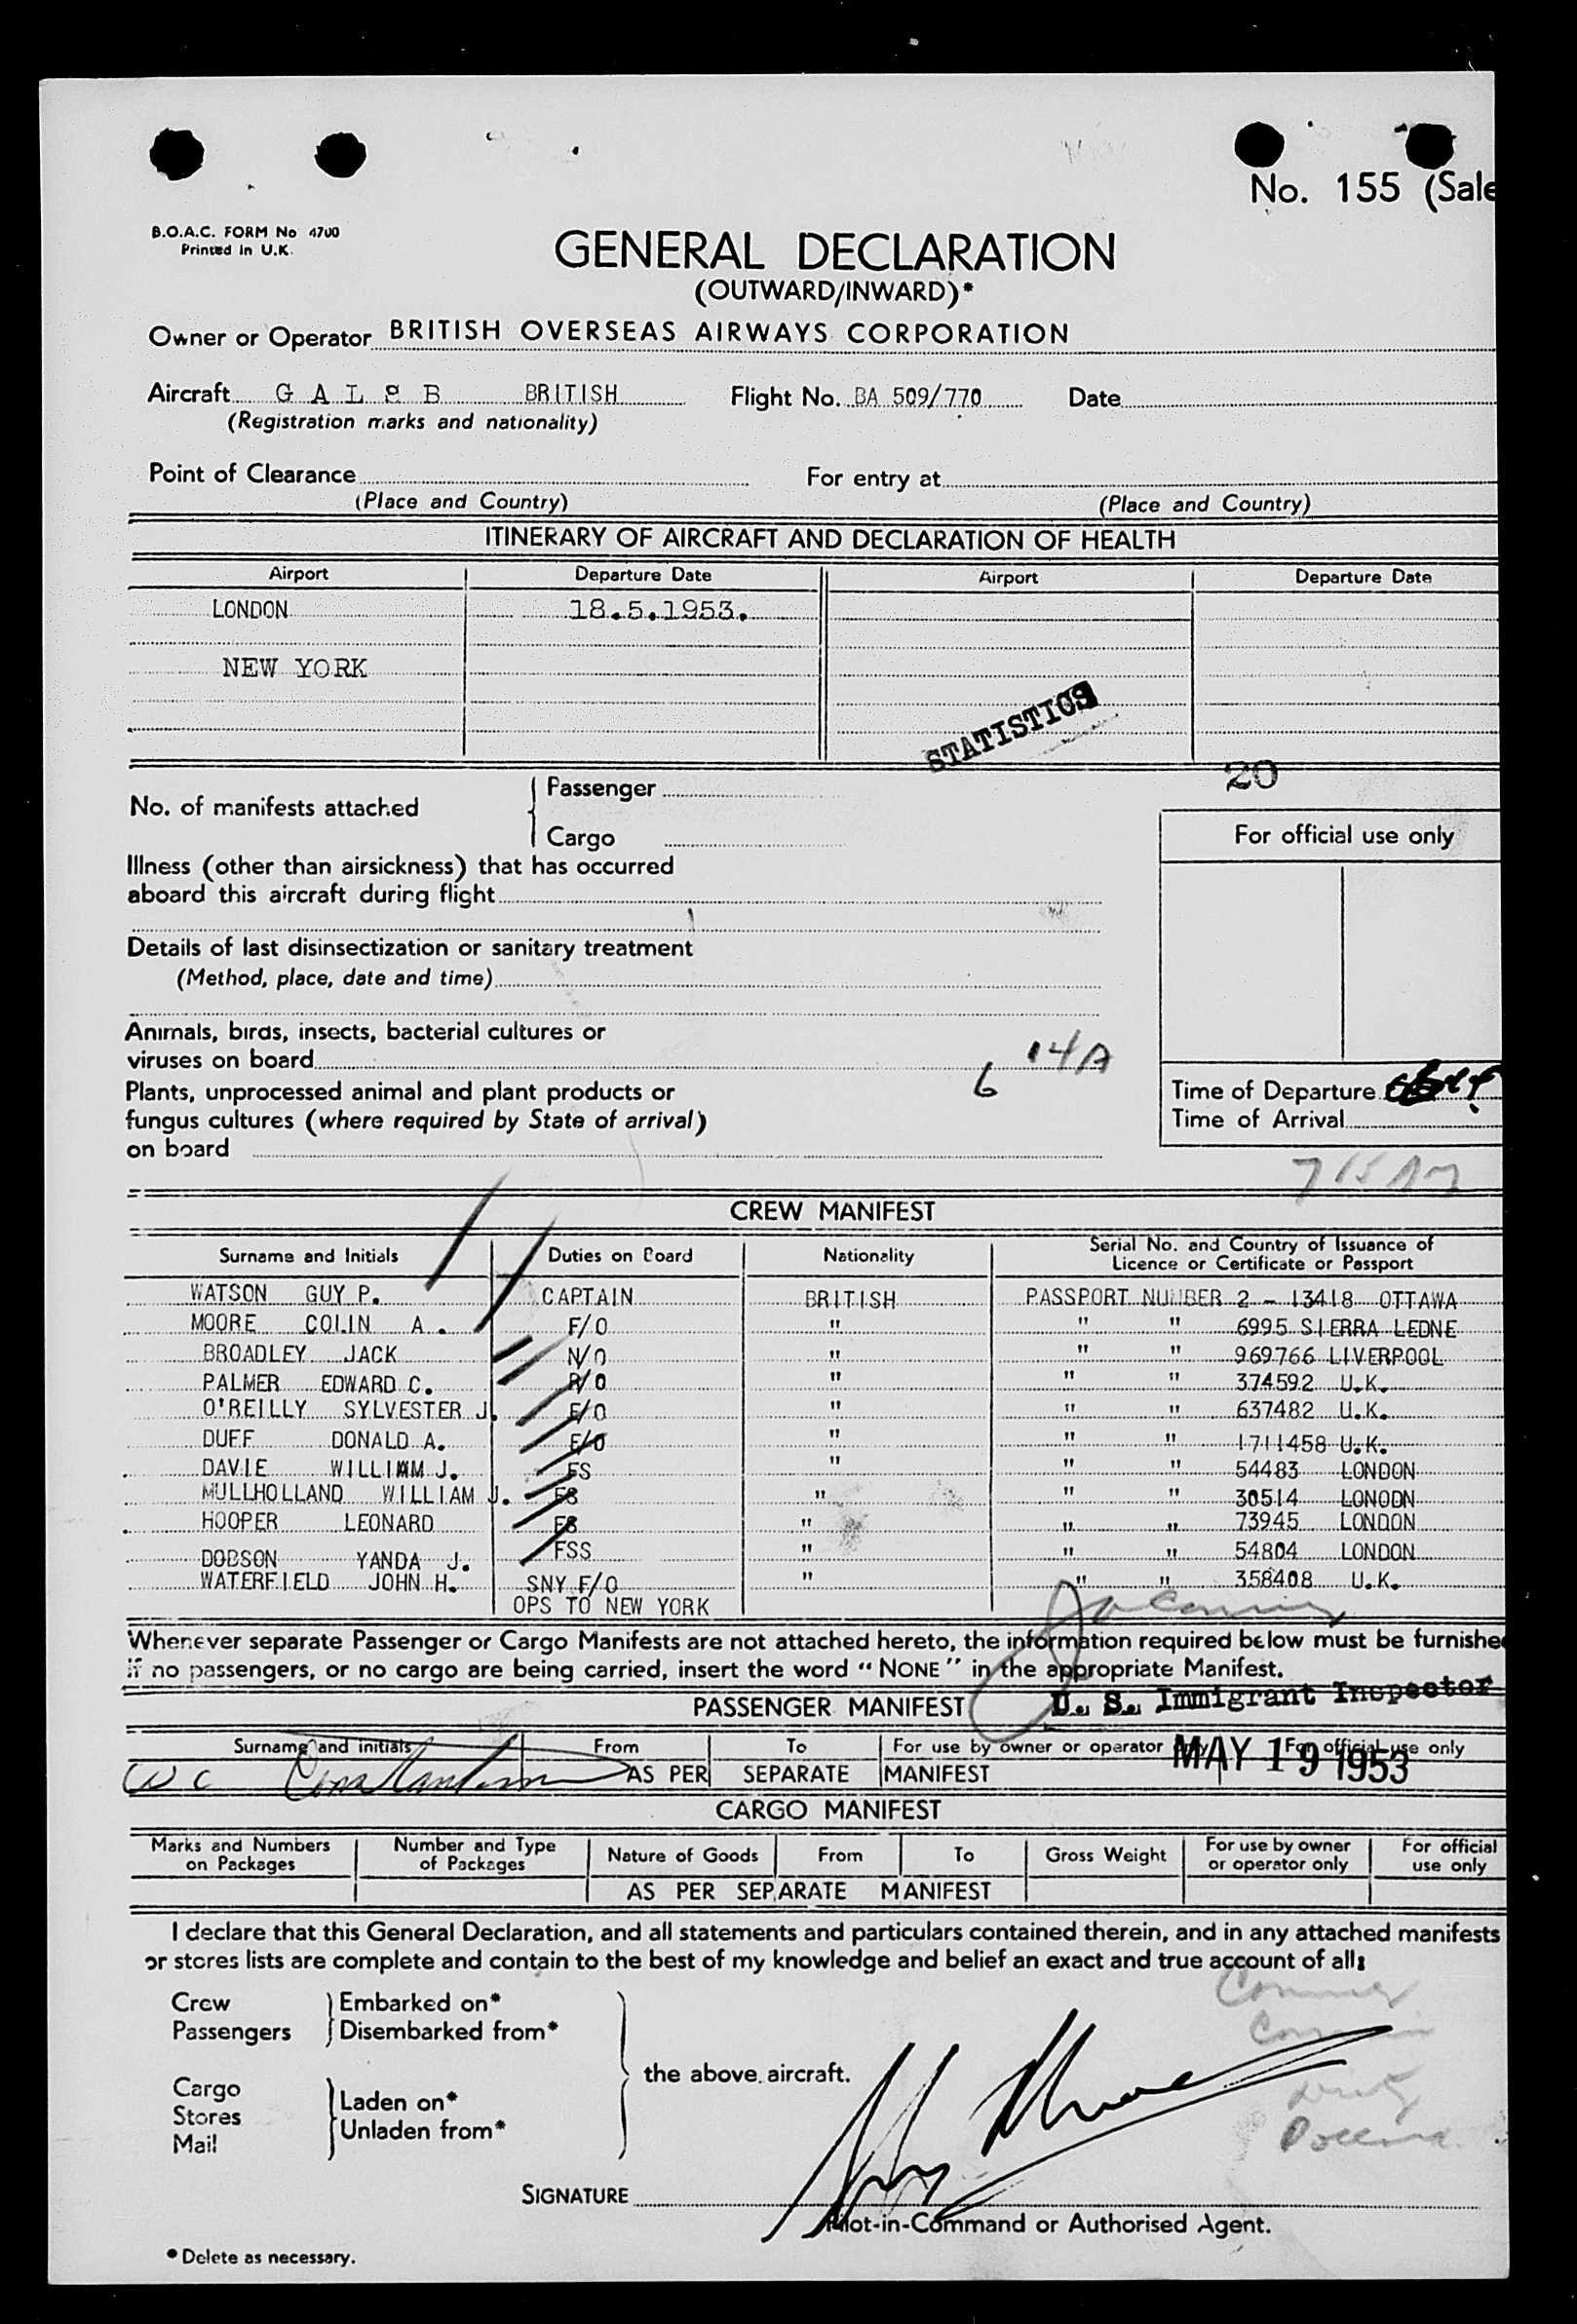 No. 155 (Sale
B.O.A.C. FORM No 4700
Printed in U.K.
GENERAL DECLARATION
(OUTWARD/INWARD)*
Owner or Operator BRITISH OVERSEAS AIRWAYS CORPORATION
Aircraft G A L S B BRITISH Flight No. BA 509/770 Date
(Registration marks and nationality)
Point of Clearance For entry at
(Place and Country) (Place and Country)
ITINERARY OF AIRCRAFT AND DECLARATION OF HEALTH
Airport Departure Date Airport Departure Date
LONDON 18.5.1953.
NEW YORK
STATISTICS
20
No. of manifests attached { Passenger
Cargo
For official use only
Illness (other than airsickness) that has occurred
aboard this aircraft during flight
Details of last disinsectization or sanitary treatment
(Method, place, date and time)
Animals, birds, insects, bacterial cultures or
viruses on board 14A
6
Plants, unprocessed animal and plant products or
fungus cultures (where required by State of arrival)
on board
Time of Departure
Time of Arrival
CREW MANIFEST
Surname and Initials Duties on Board Nationality Serial No. and Country of Issuance of
Licence or Certificate or Passport
WATSON GUY P. CAPTAIN BRITISH PASSPORT NUMBER 2 - 13418 OTTAWA
MOORE COLIN A. F/O " " " 6995 SIERRA LEONE
BROADLEY JACK N/O " " " 969766 LIVERPOOL
PALMER EDWARD C. R/O " " " 374592 U.K.
O'REILLY SYLVESTER J. E/O " " " 637482 U.K.
DUFF DONALD A. E/O " " " 1711458 U.K.
DAVIE WILLIAM J. FS " " " 54483 LONDON
MULLHOLLAND WILLIAM J. FS " " " 30514 LONODN
HOOPER LEONARD FS " " " 73945 LONDON
DOBSON YANDA J. FSS " " " 54804 LONDON
WATERFIELD JOHN H. SNY F/O " " " 358408 U.K.
OPS TO NEW YORK
Whenever separate Passenger or Cargo Manifests are not attached hereto, the information required below must be furnishe
if no passengers, or no cargo are being carried, insert the word "NONE" in the appropriate Manifest.
PASSENGER MANIFEST
U. S. Immigrant Inspector
Surname and initials From To For use by owner or operator only For official use only
AS PER SEPARATE MANIFEST
MAY 19 1953
CARGO MANIFEST
Marks and Numbers on Packages Number and Type of Packages Nature of Goods From To Gross Weight For use by owner or operator only For official use only
AS PER SEPARATE MANIFEST
I declare that this General Declaration, and all statements and particulars contained therein, and in any attached manifests
or stores lists are complete and contain to the best of my knowledge and belief an exact and true account of all:
Crew } Embarked on*
Passengers } Disembarked from*
the above aircraft.
Cargo
Stores } Laden on*
Mail } Unladen from*
SIGNATURE
Pilot-in-Command or Authorised Agent.
* Delete as necessary.